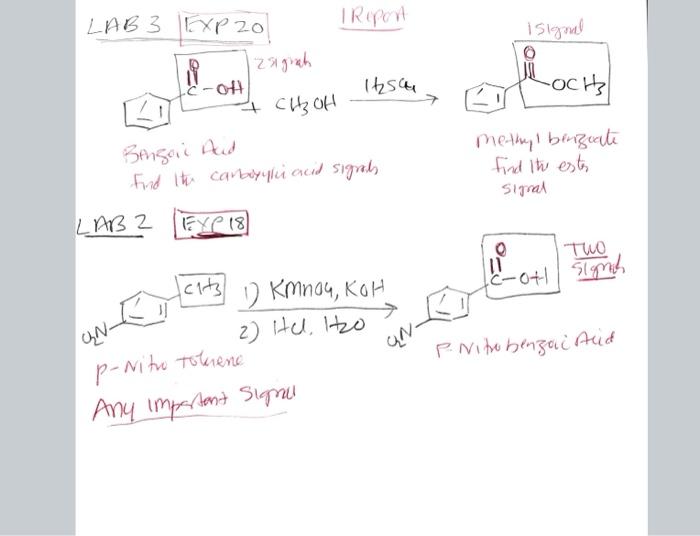 LAB 3 EXP 20
1 Report
1 Signal
2 signals
O
C-OH
+ CH3OH
H2SO4
O
C
OCH3
Benzoic Acid
Find the carboxylic acid signals
Methyl benzoate
find the ester
signal
LAB 2 EXP 18
CH3
O2N
1) KMnO4, KOH
2) HCl, H2O
O
C-OH
O2N
TWO
Signals
p-Nitro Toluene
P-Nitrobenzoic Acid
Any important Signal